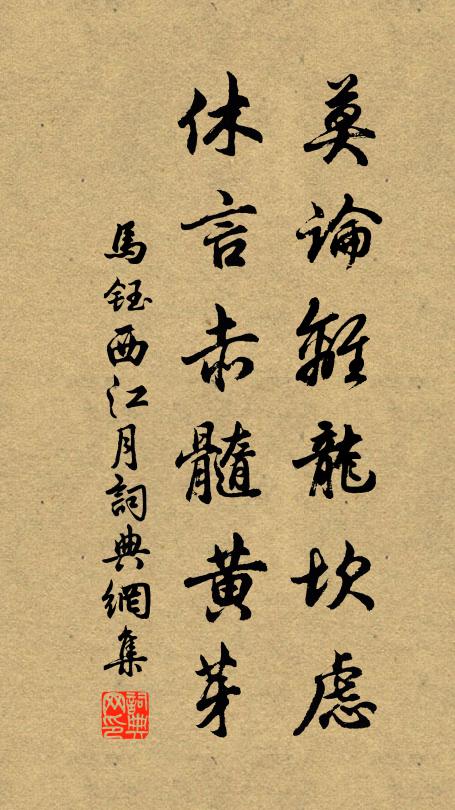 莫論離龍坎虑
休言赤髓黄芽
馬鈺西江月詞典網集
詞典网印